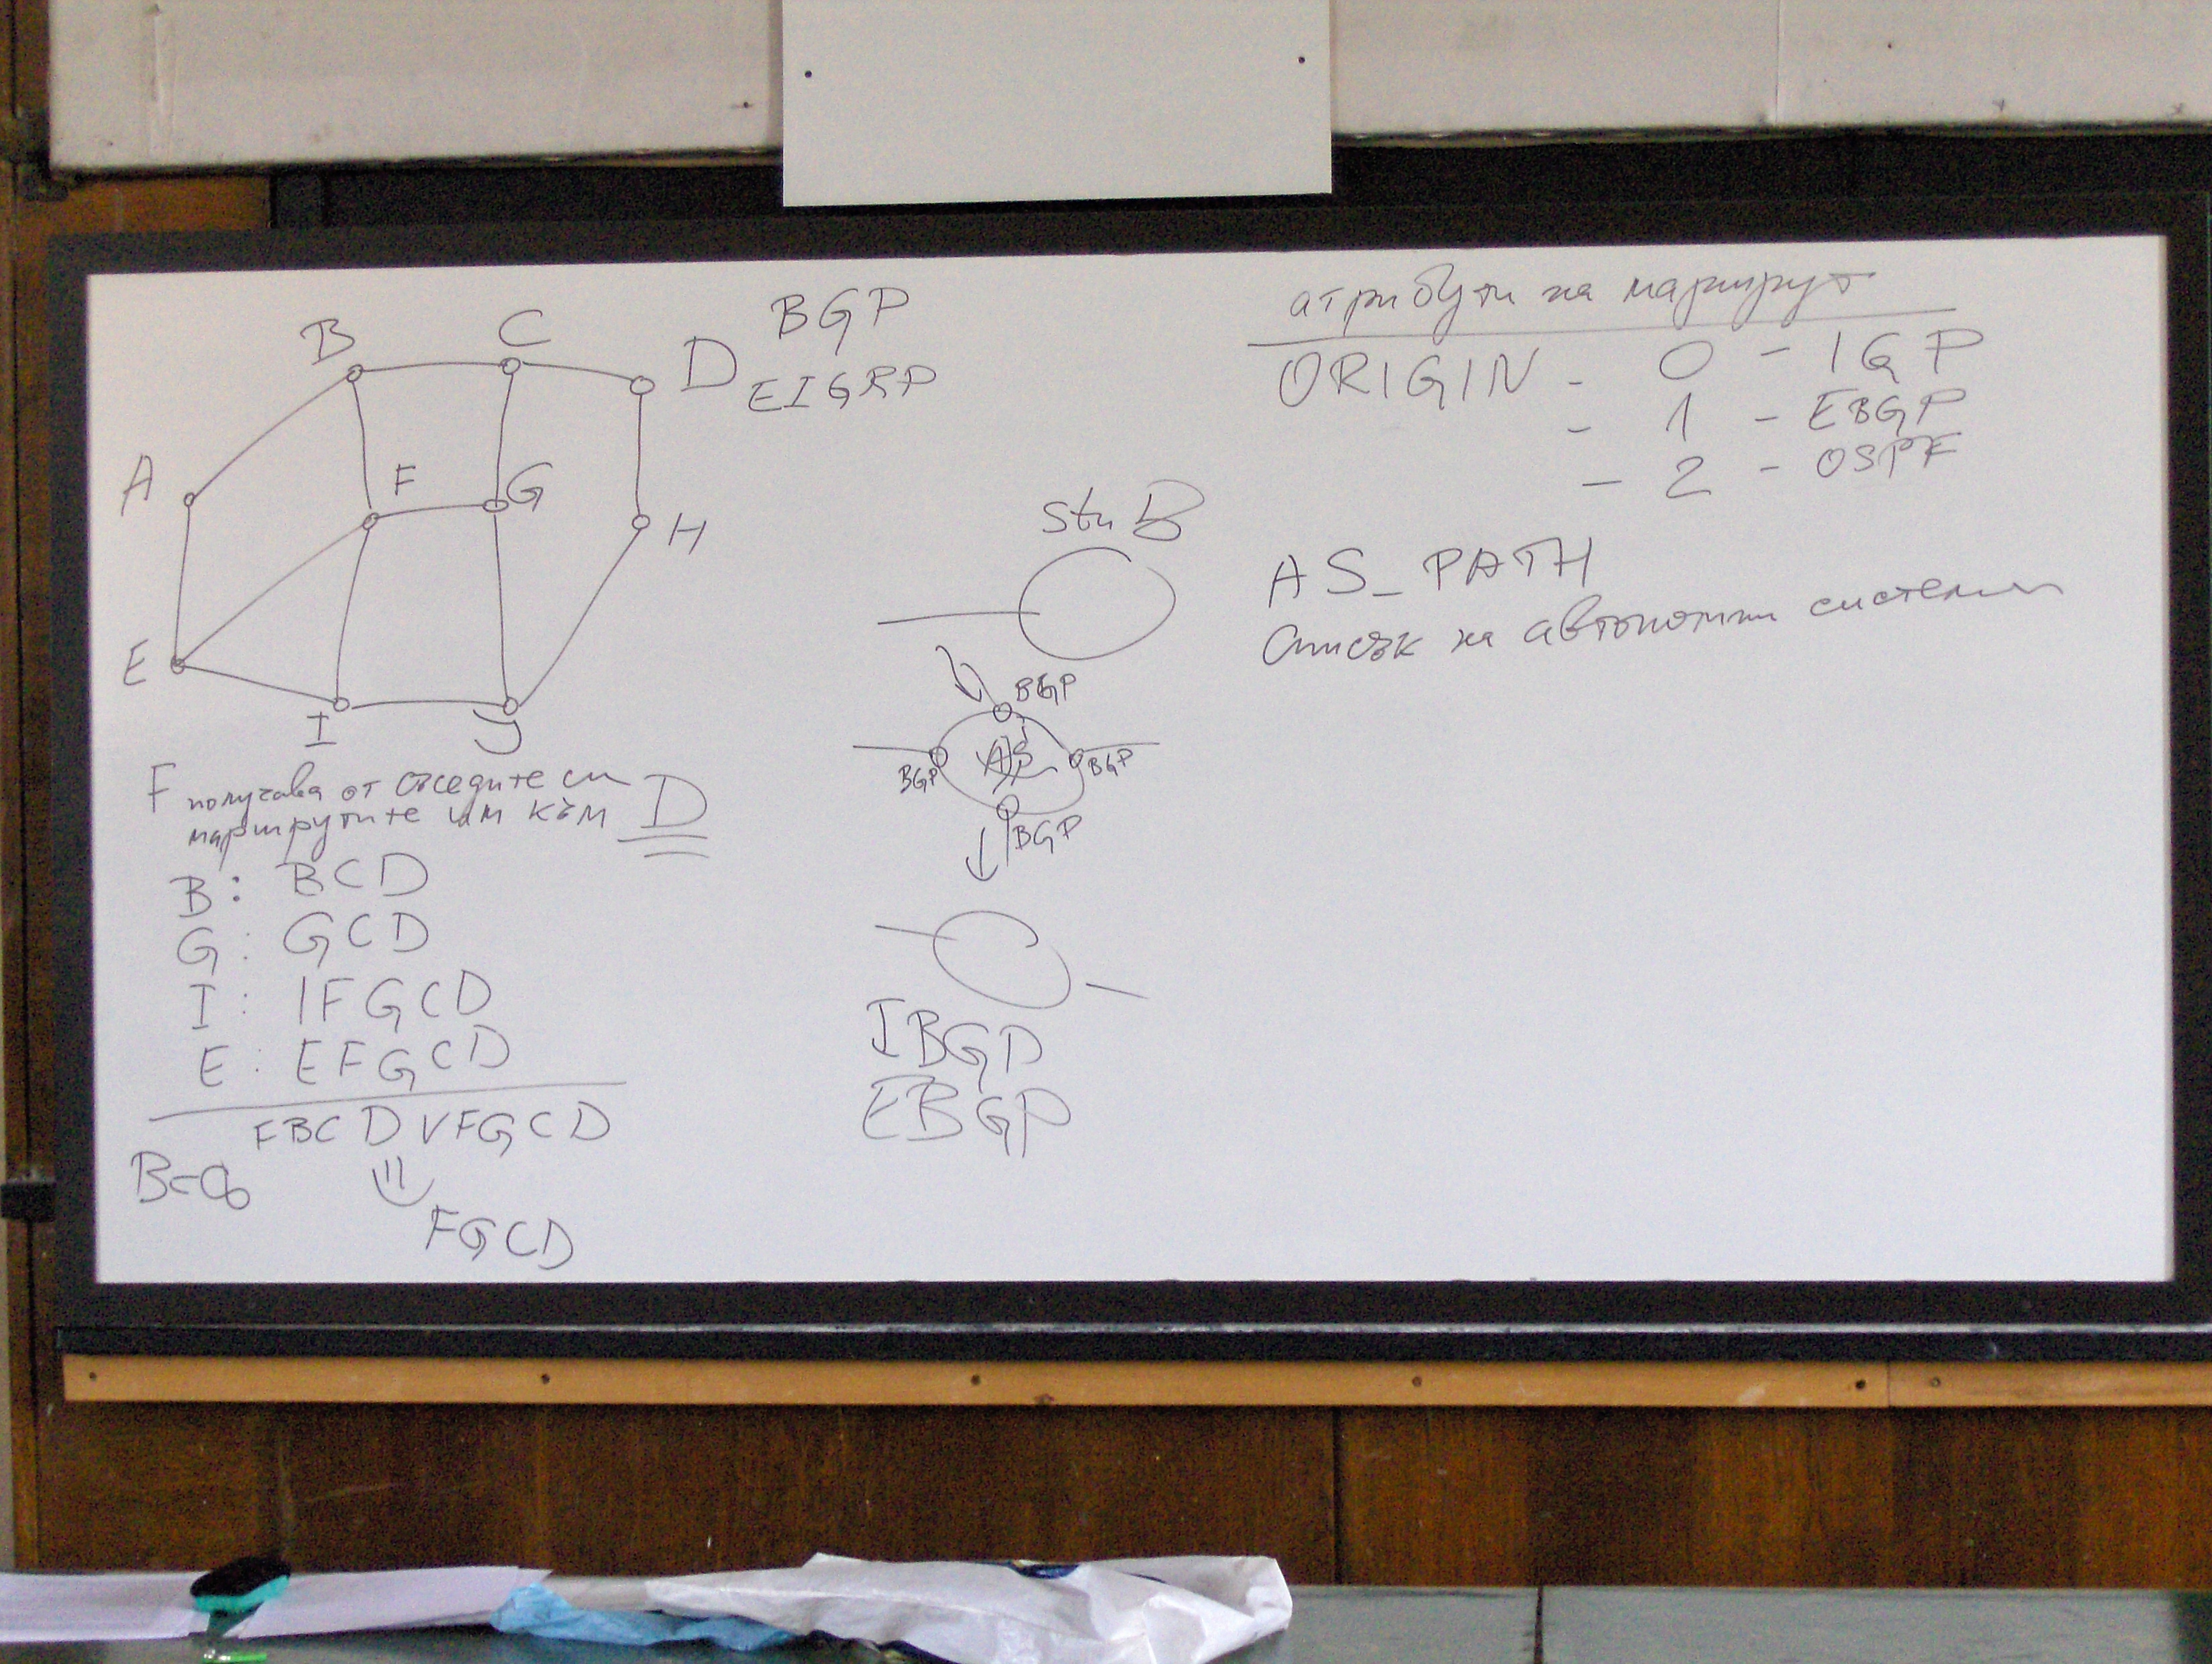 B C D
A F G H
E I J
BGP
EIGRP
F получава от съседите си
маршрутите им към D
B: BCD
G: GCD
I: IFGCD
E: EFGCD
FBCD V FGCD
B=∞
FGCD
stuB
BGP
BGP AS BGP
BGP
IBGP
EBGP
атрибути на маршрут
ORIGIN - 0 - IGP
- 1 - EBGP
- 2 - OSPF
AS_PATH
Списък на автономни системи